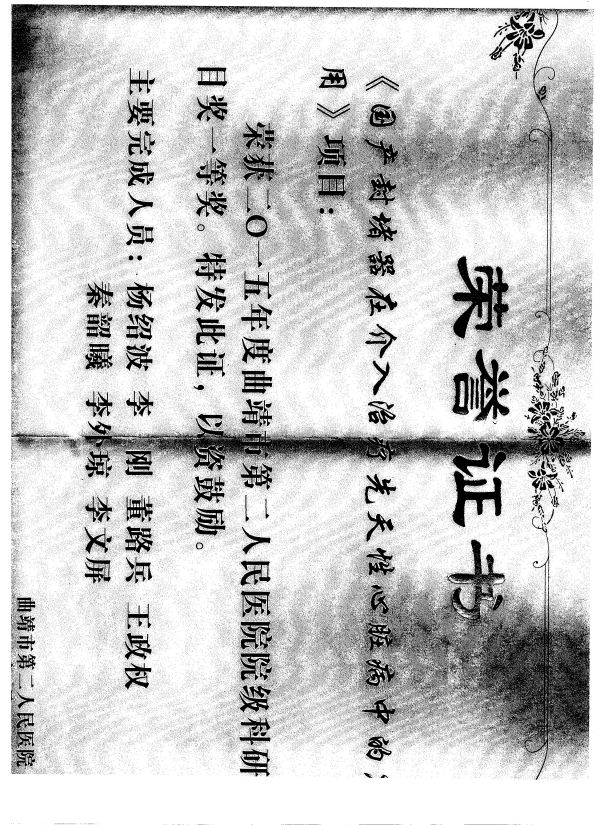 荣誉证书
《国产封堵器在介入治疗先天性心脏病中的
用》项目：
荣获二〇一五年度曲靖市第二人民医院院级科研
目奖一等奖。特发此证，以资鼓励。
主要完成人员：杨绍波 李 刚 董路兵 王政权
秦韶曦 李外琼 李文屏
曲靖市第二人民医院